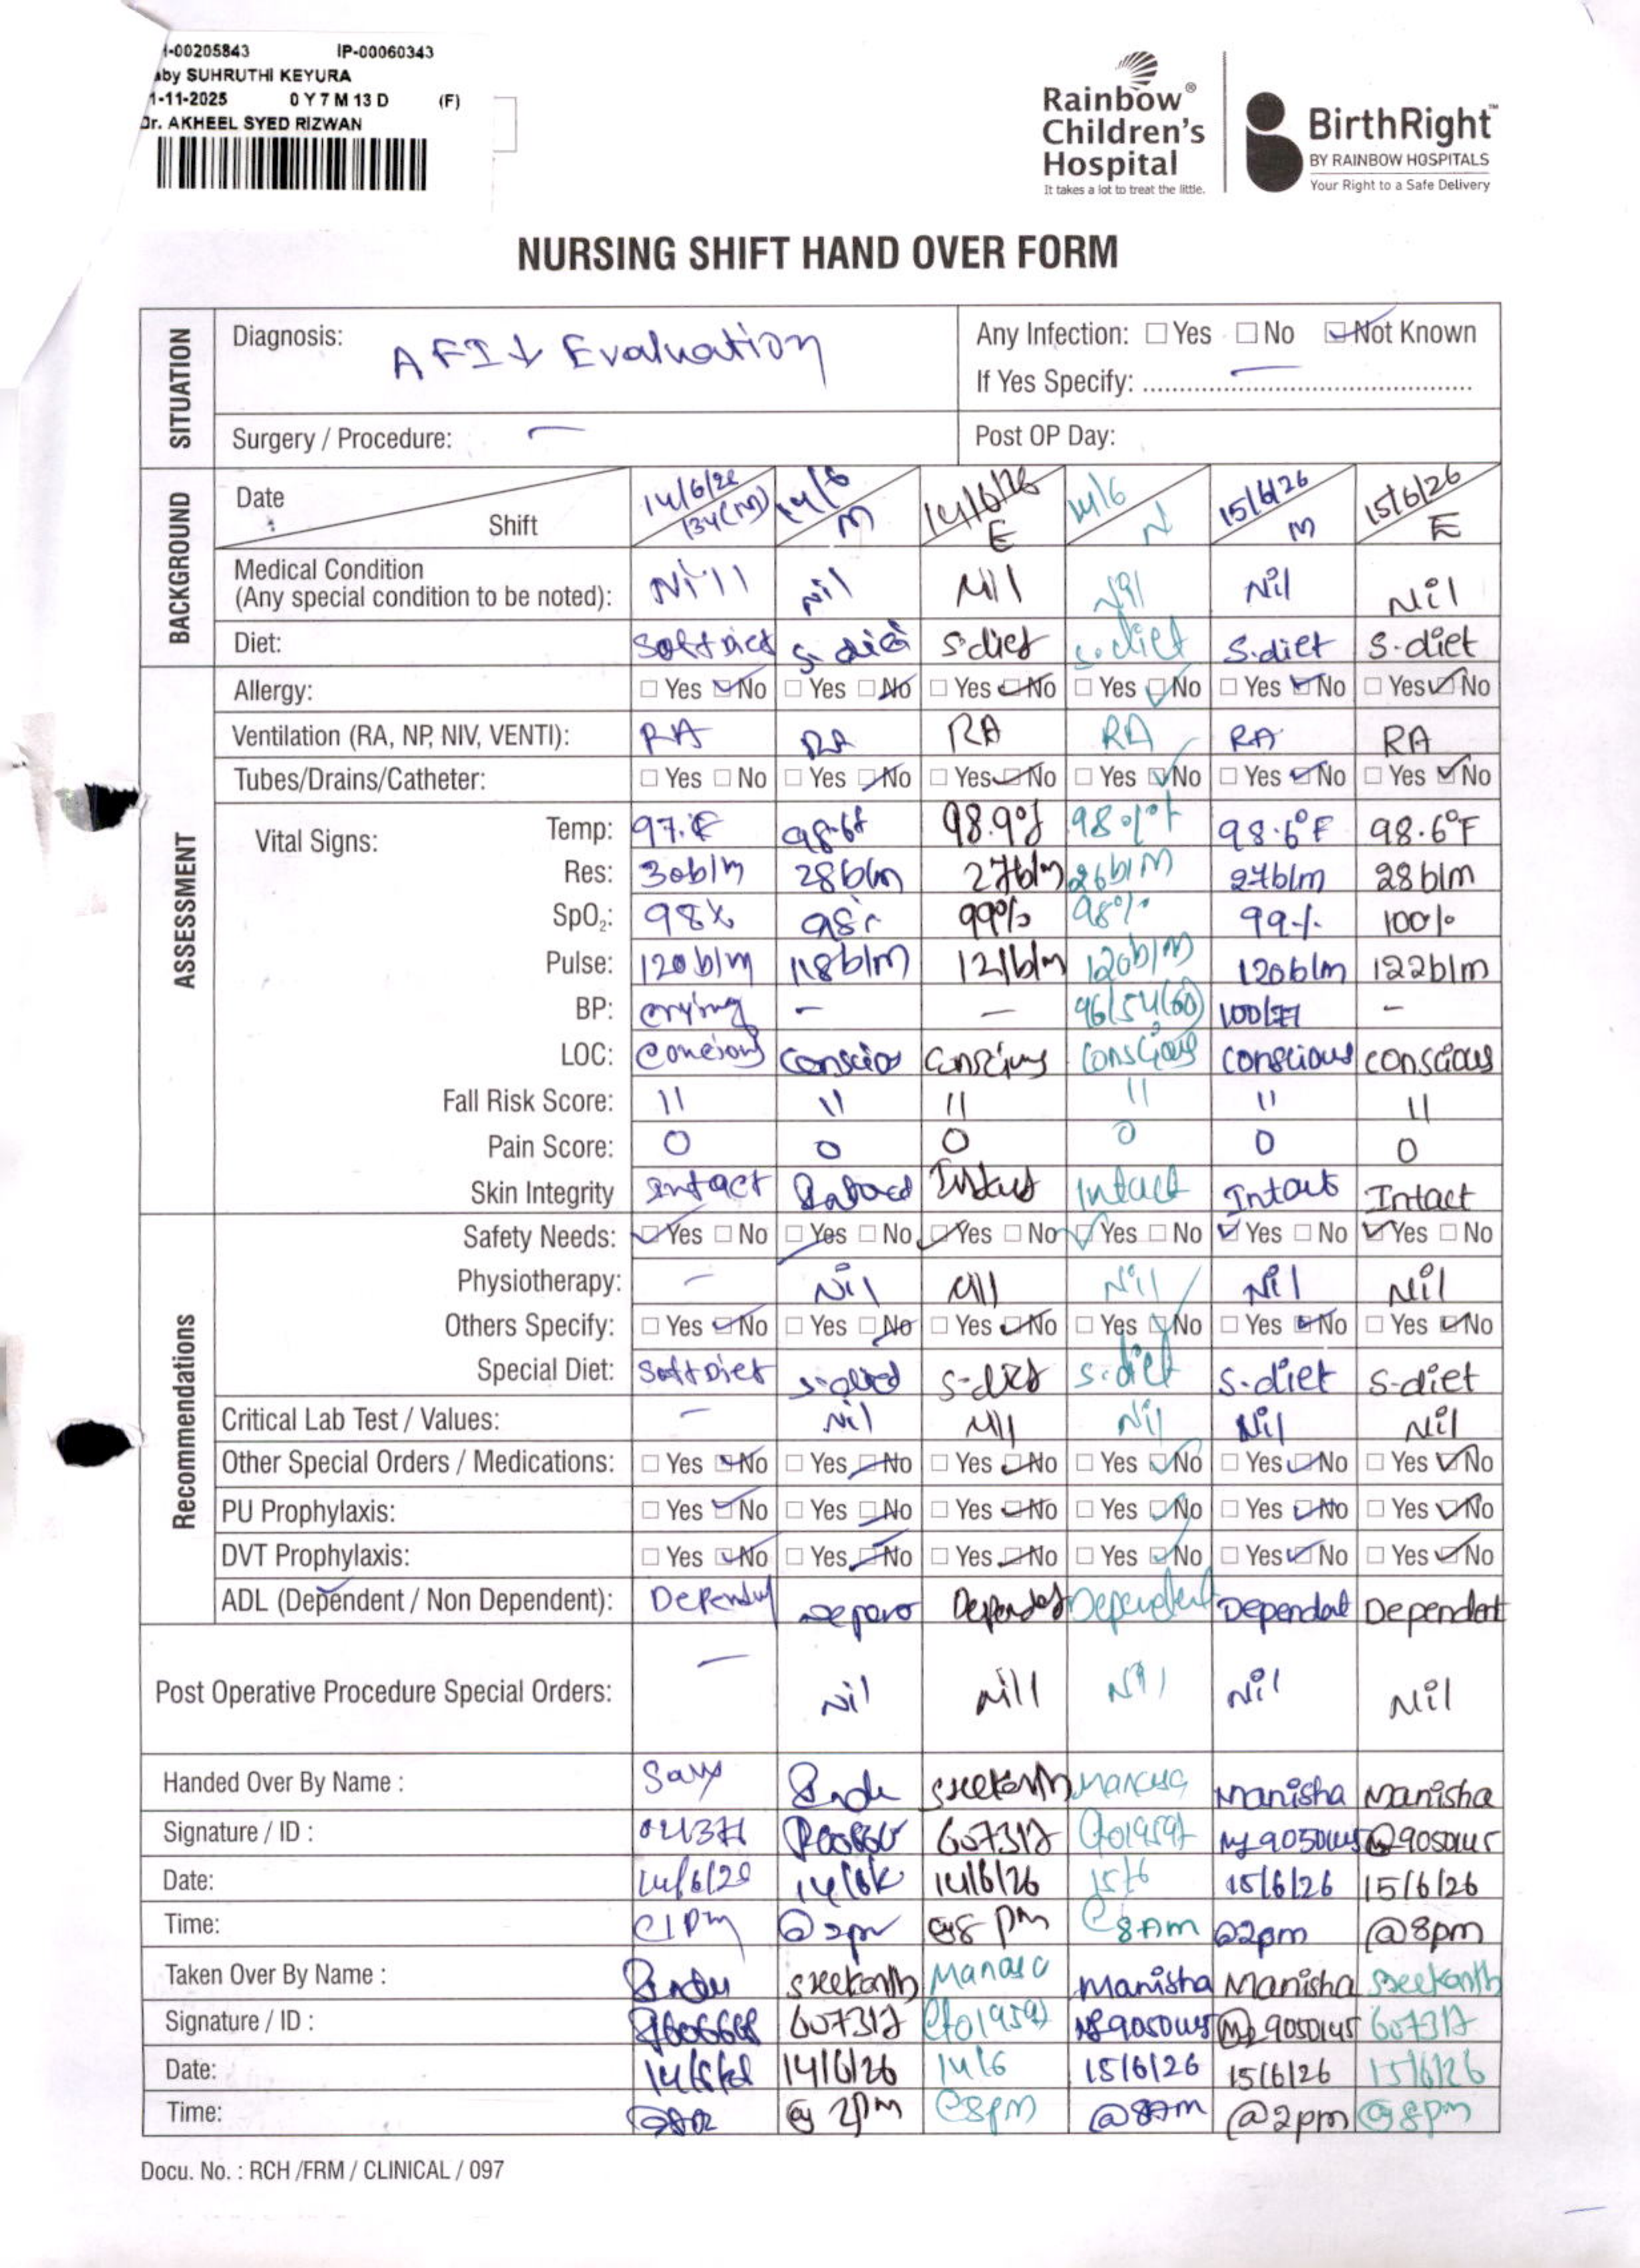 -00205843 IP-00060343
aby SUHRUTHI KEYURA
1-11-2025 0 Y 7 M 13 D (F)
Dr. AKHEEL SYED RIZWAN
Rainbow® Children's Hospital
It takes a lot to treat the little.
BirthRight™
BY RAINBOW HOSPITALS
Your Right to a Safe Delivery
NURSING SHIFT HAND OVER FORM
SITUATION
Diagnosis: AFI↓ Evaluation
Any Infection: Yes No Not Known
If Yes Specify:
Surgery / Procedure: —
Post OP Day:
BACKGROUND
Date 14/6/26 14/6 14/6/26 14/6 15/6/26 15/6/26
Shift M E N M E
Medical Condition
(Any special condition to be noted): Nill Nil Nil Nil Nil
Diet: Soft Diet S. diet S.diet S.diet S.diet S.diet
ASSESSMENT
Allergy: Yes No Yes No Yes No Yes No Yes No Yes No
Ventilation (RA, NP, NIV, VENTI): RA RA RA RA RA RA
Tubes/Drains/Catheter: Yes No Yes No Yes No Yes No Yes No Yes No
Vital Signs:
Temp: 98.6f 98.9°f 98.6°F 98.6°F
Res: 30b/m 28b/m 27b/m 26b/M 27b/m 28b/m
SpO₂: 98% 98% 99% 98% 99% 100%
Pulse: 120b/m 118b/m 121b/m 120b/m 120b/m 122b/m
BP: crying - — 96/54(60) -
LOC: Concious Conscious Conscious Conscious conscious conscious
Fall Risk Score: 11 11 11 11 11 11
Pain Score: 0 0 0 0 0 0
Skin Integrity Intact Intact Intact Intact Intact
Recommendations
Safety Needs: Yes No Yes No Yes No Yes No Yes No Yes No
Physiotherapy: — Nil Nil Nil Nil Nil
Others Specify: Yes No Yes No Yes No Yes No Yes No Yes No
Special Diet: Soft Diet S-diet S-diet S-diet S-diet S-diet
Critical Lab Test / Values: — Nil Nil Nil Nil Nil
Other Special Orders / Medications: Yes No Yes No Yes No Yes No Yes No Yes No
PU Prophylaxis: Yes No Yes No Yes No Yes No Yes No Yes No
DVT Prophylaxis: Yes No Yes No Yes No Yes No Yes No Yes No
ADL (Dependent / Non Dependent): Dependent Dependent Dependent Dependent Dependent
Post Operative Procedure Special Orders: — Nil Nill Nil Nil Nil
Handed Over By Name : Sreekanth Manasa Manisha Manisha
Signature / ID : 607317
Date: 14/6/26 15/6 15/6/26 15/6/26
Time: @2pm @8 pm @8Am @2pm @8pm
Taken Over By Name : Sreekanth Manasa Manisha Manisha Sreekanth
Signature / ID : 607317 9050145 607317
Date: 14/6/26 14/6 15/6/26 15/6/26 15/6/26
Time: @ 2pm @8pm @8Am @2pm @8pm
Docu. No. : RCH /FRM / CLINICAL / 097